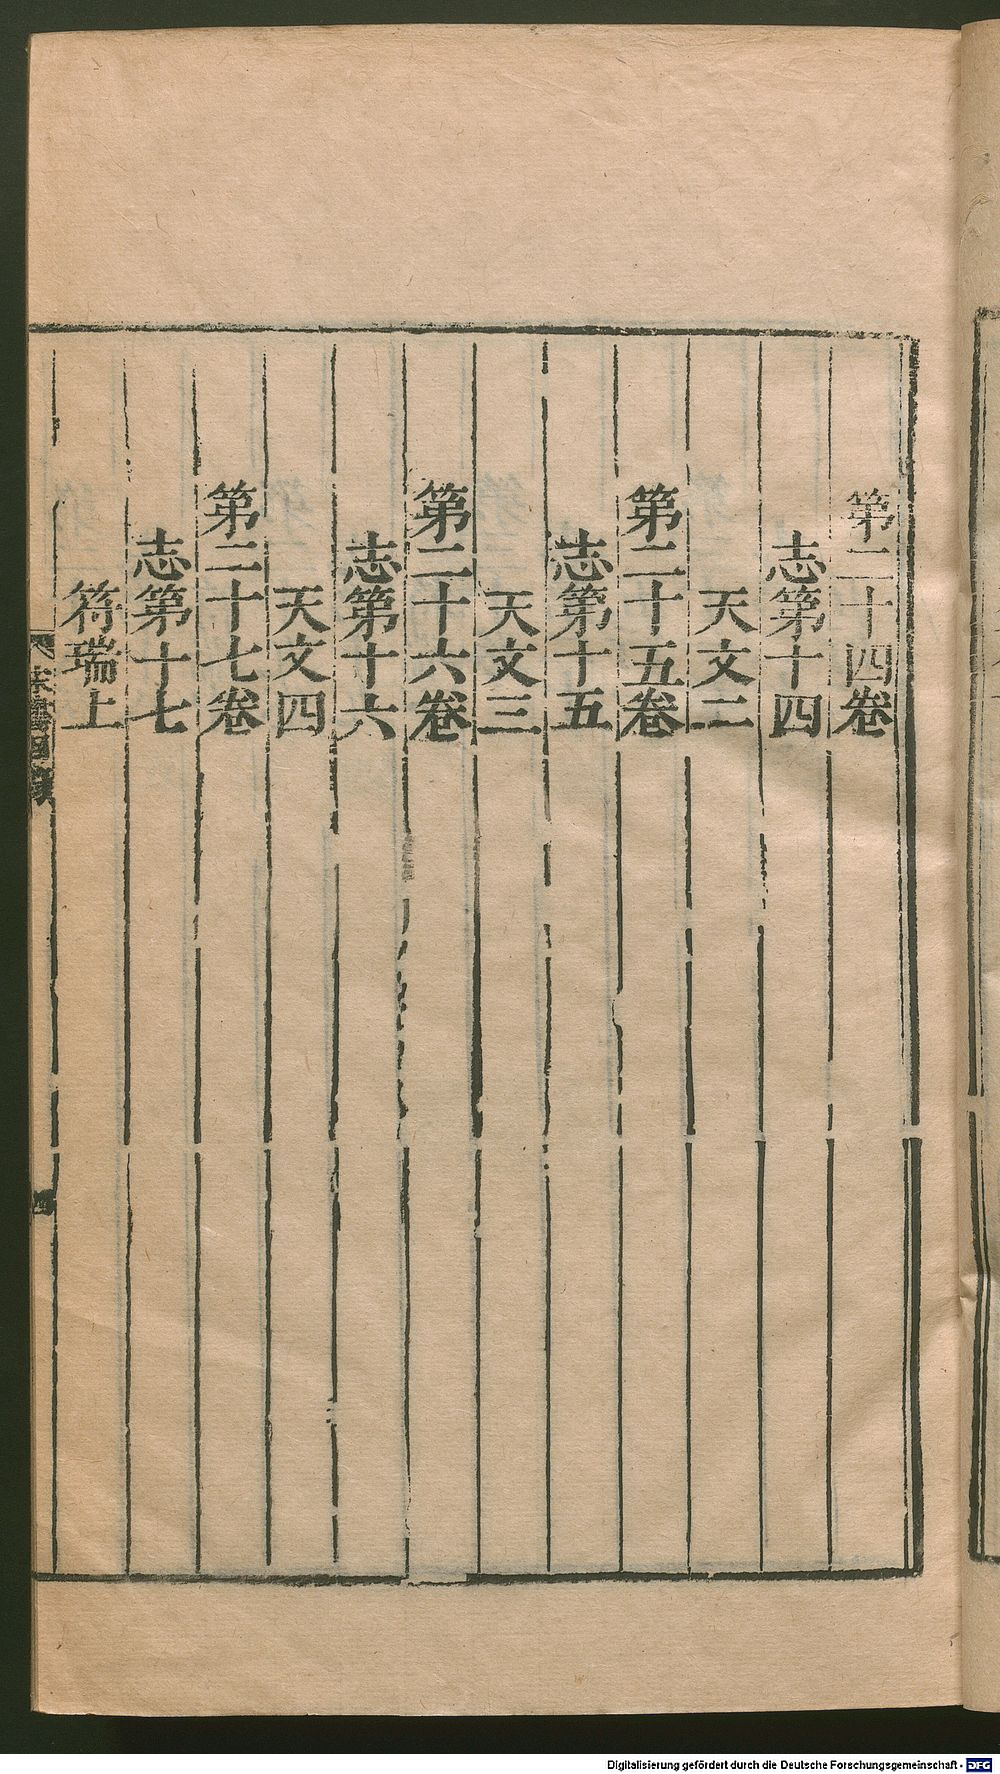 第二十四卷
志第十四
天文二
第二十五卷
志第十五
天文三
第二十六卷
志第十六
天文四
第二十七卷
志第十七
符瑞上
宋書目錄
四
Digitalisierung gefördert durch die Deutsche Forschungsgemeinschaft - DFG